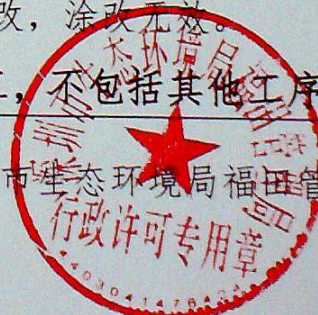 改，涂改无效。
，不包括其他工序
市生态环境局福田管
深圳市生态环境局福田管理局
行政许可专用章